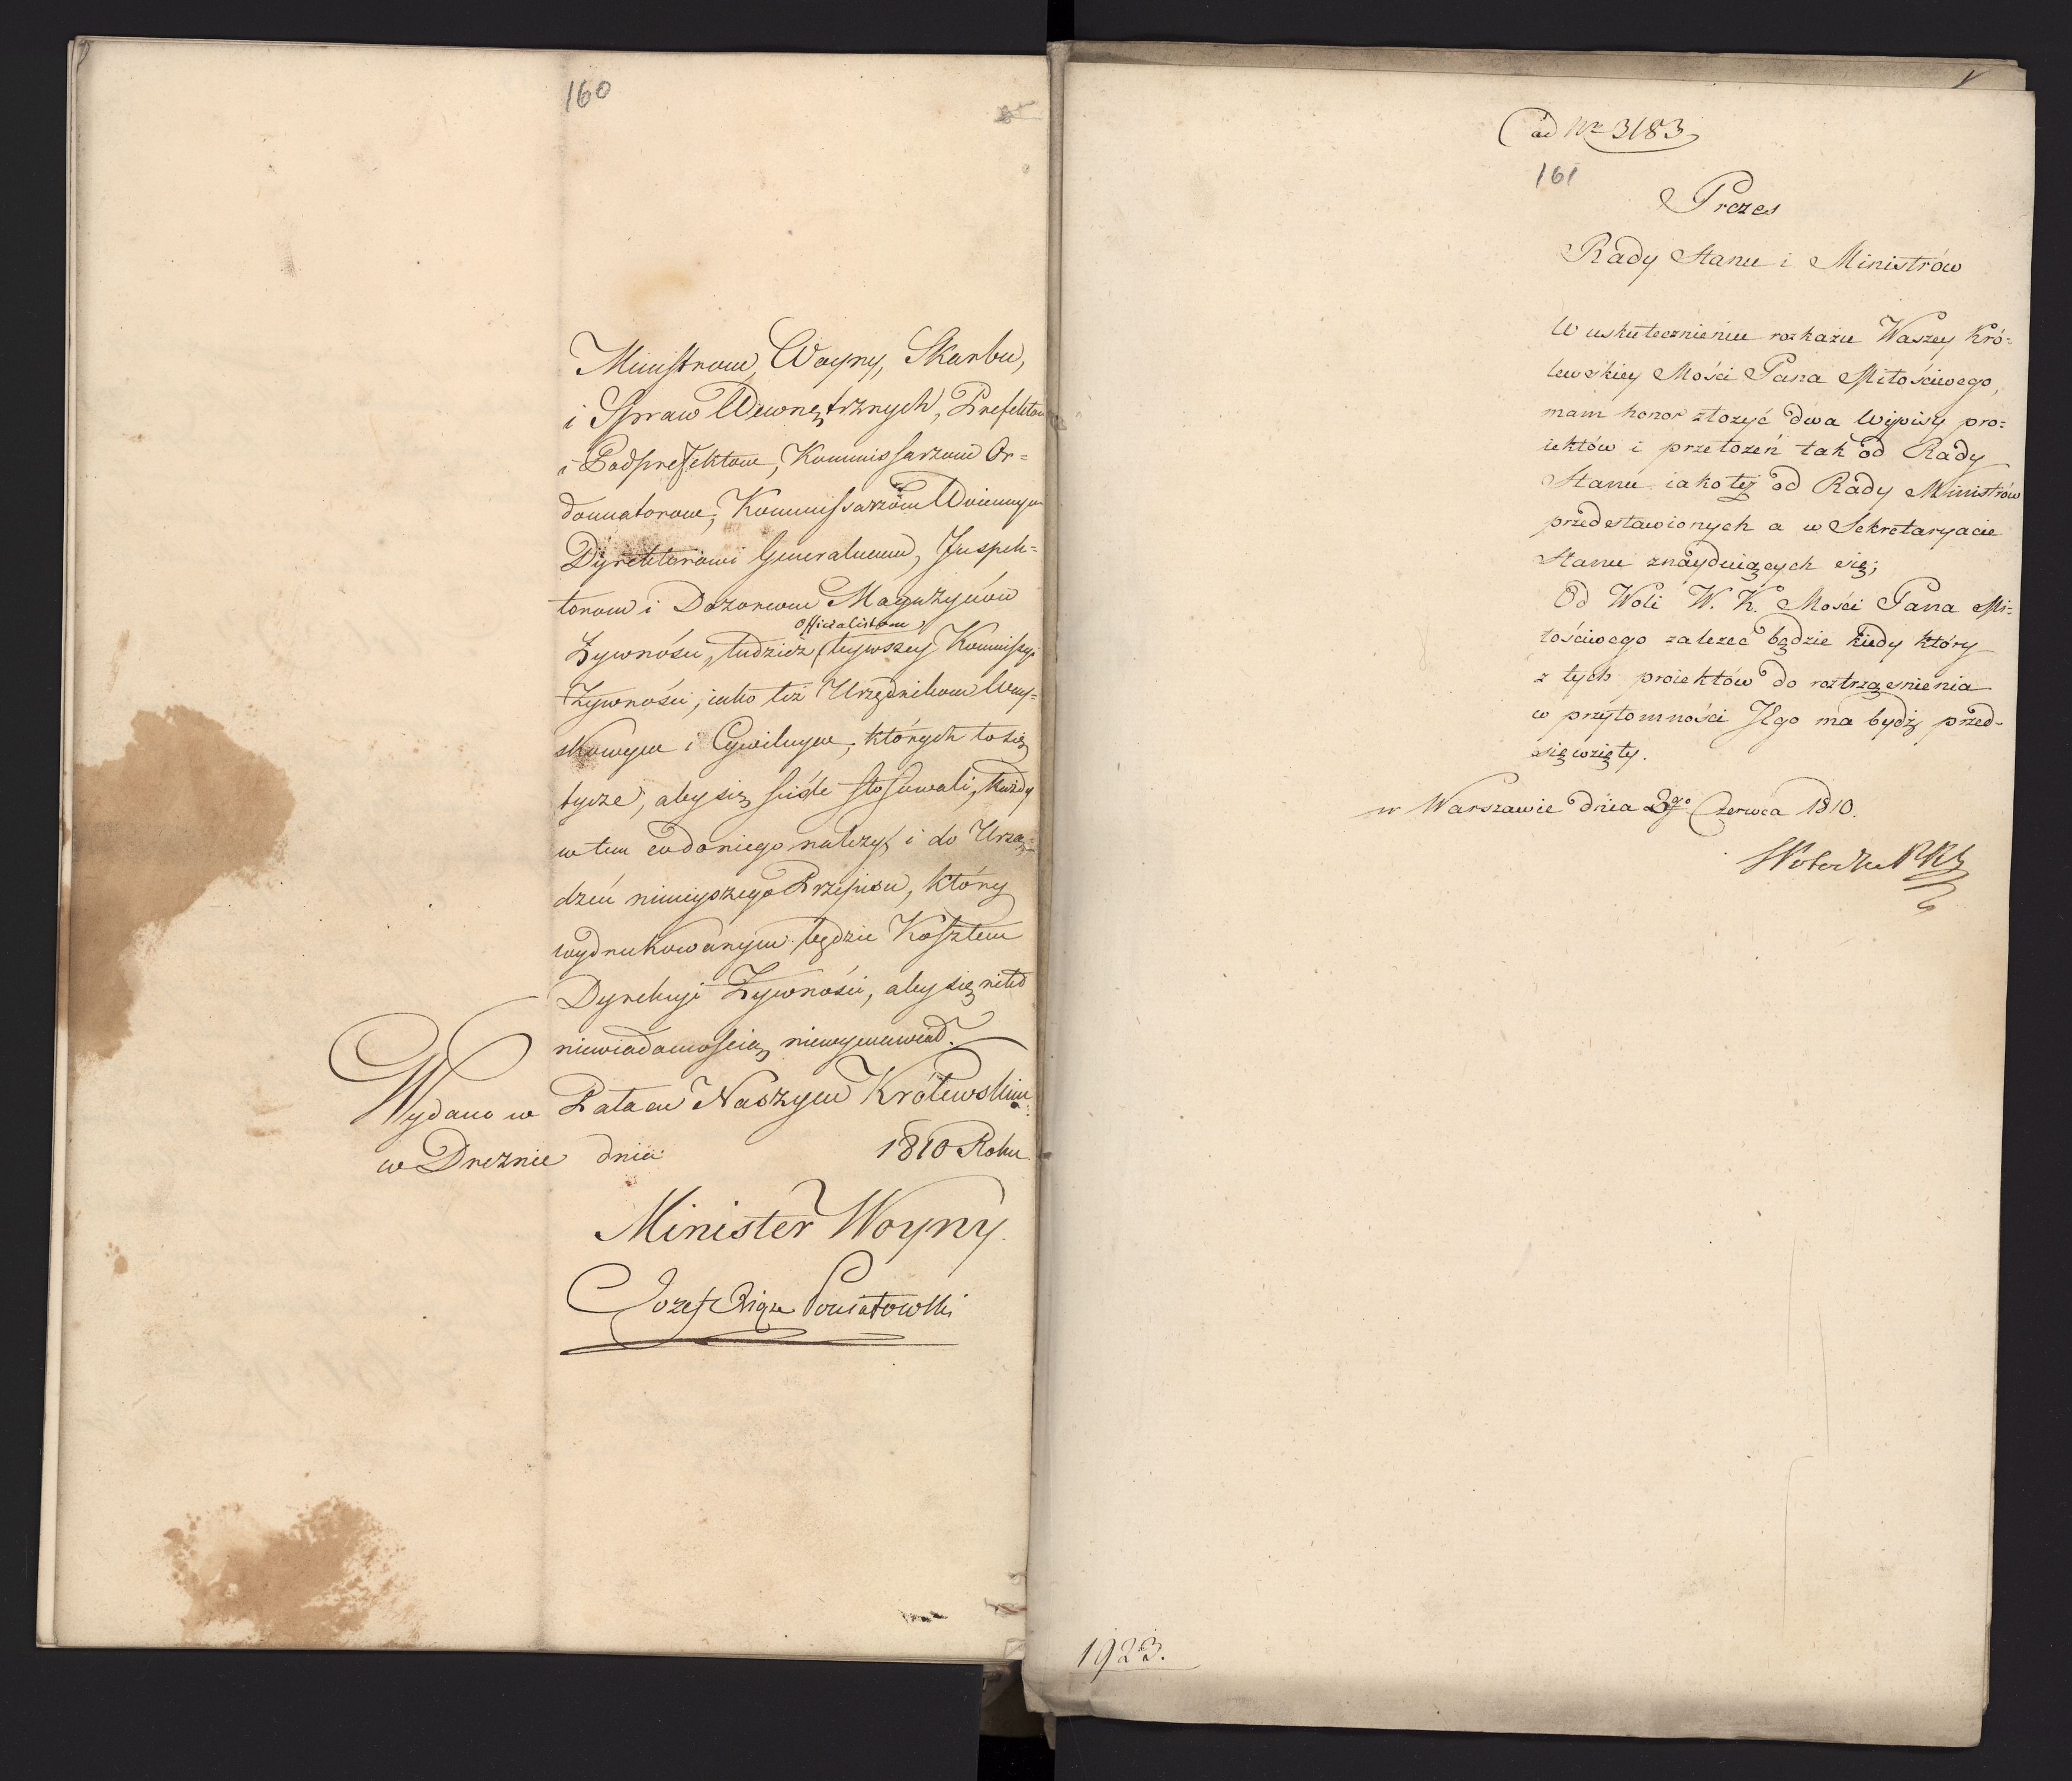 160
Ministrom, Woyny, Skarbu,
i Spraw Wewnętrznych, Prefektom
i Podprefektom, Kommissarzom Or=
donnatorom, Kommissarzom Woiennym
Dyrektorowi Generalnemu, Inspek=
torom i Dozorcom Magazynów
Officialistom
Żywności, tudzież bywszey Kommissyi
Żywności, iako też Urzędnikom Woy=
skowym i Cywilnym, których to się
tycze, aby się ściśle stosowali, każdy
w tem co do niego należy, i do Urzą=
dzeń ninieyszego Przepisu, który
wydrukowanym będzie Kosztem
Dyrekcyi Żywności, aby się nikt
niewiadomością niewymawiał.
Wydano w Pałacu Naszym Królewskim
w Dreznie dnia 1810 Roku
Minister Woyny.
Jozef Xiąże Poniatowski
ad Nr 3183
161
Prezes
Rady Stanu i Ministrów
W uskutecznieniu rozkazu Waszey Kró=
lewskiey Mości Pana Miłościwego,
mam honor złożyć dwa Wypisy pro=
iektów i przełożeń tak od Rady
Stanu iako też od Rady Ministrów
przedstawionych a w Sekretaryacie
Stanu znayduiących się;
Od Woli W. K. Mości Pana Mi=
łościwego zależeć będzie kiedy który
z tych proiektów do roztrząśnienia
w przytomności Jego ma bydź przed=
sięwzięty.
w Warszawie dnia 2go Czerwca 1810.
1923.